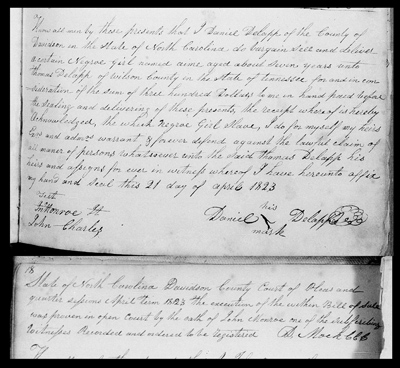 Know all men by those presents that I Daniel Delapp of the County of
Davidson in the State of North Carolina do bargain Sell and deliver
a certain Negroe girl named aime aged about Seven years unto
Thomas Delapp of wilson County in the State of tennessee for and in con
sideration of the Sum of three hundred Dollars to me in hand paid before
the Sealing and delivering of these presents, the receipt where of is hereby
acknowledged, the which Negroe Girl Slave, I do for myself my heirs
Exrs and admrs warrant & forever defend against the lawfull claim of
all maner of persons whatsoever unto the Said Thomas Delapp his
heirs and assigns for ever in witness whereof I have hereunto affix
my hand and Seal this 21 day of april 1823
Test
Monroe
his
John Charles
Daniel X Delapp Seal
mark
18
State of North Carolina Davidson County Court of Pleas and
quarter Sessions April Term 1823 the execution of the within Bill of Sale
was proven in open Court by the oath of John Monroe one of the Subscribing
Witnesses Recorded and ordered to be Registered D. Mock CCC